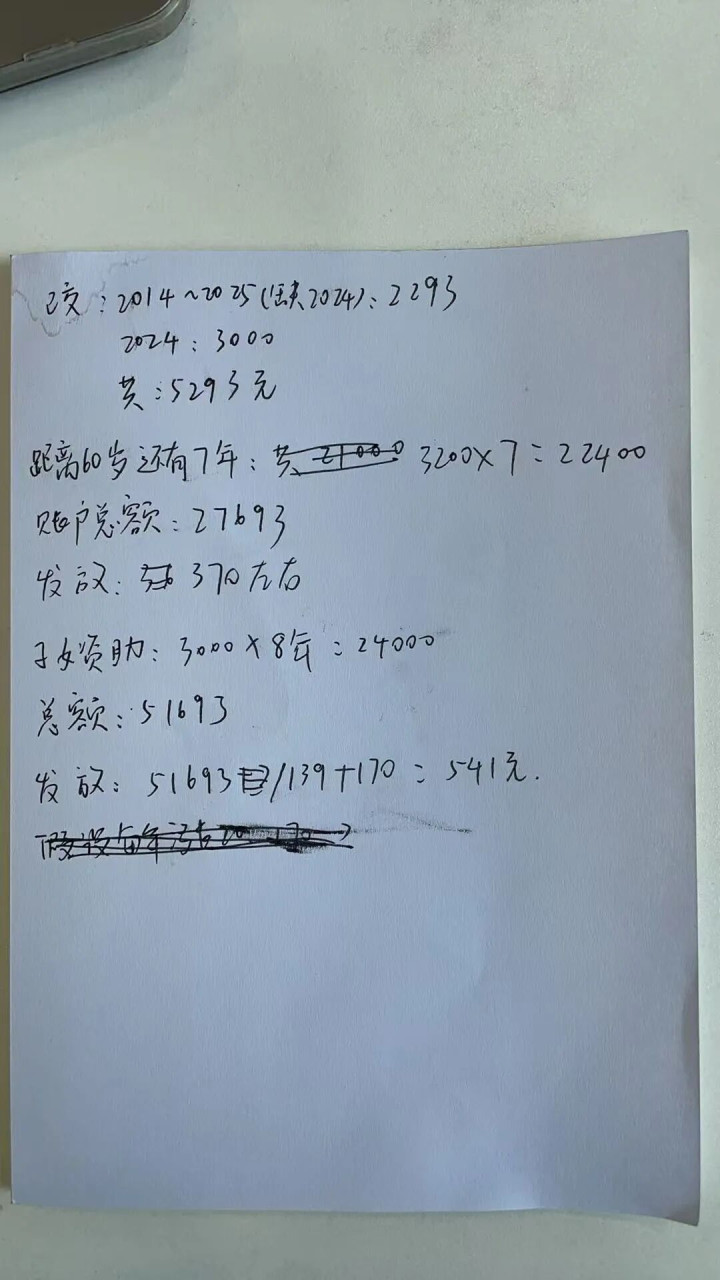 已交：2014～2025(缺2024)：2293
2024：3000
共：5293元
距离60岁还有7年：共 21000 3200×7=22400
账户总额：27693
发放：370左右
子女资助：3000×8年=24000
总额：51693
发放：51693/139+170=541元.
假设每年涨